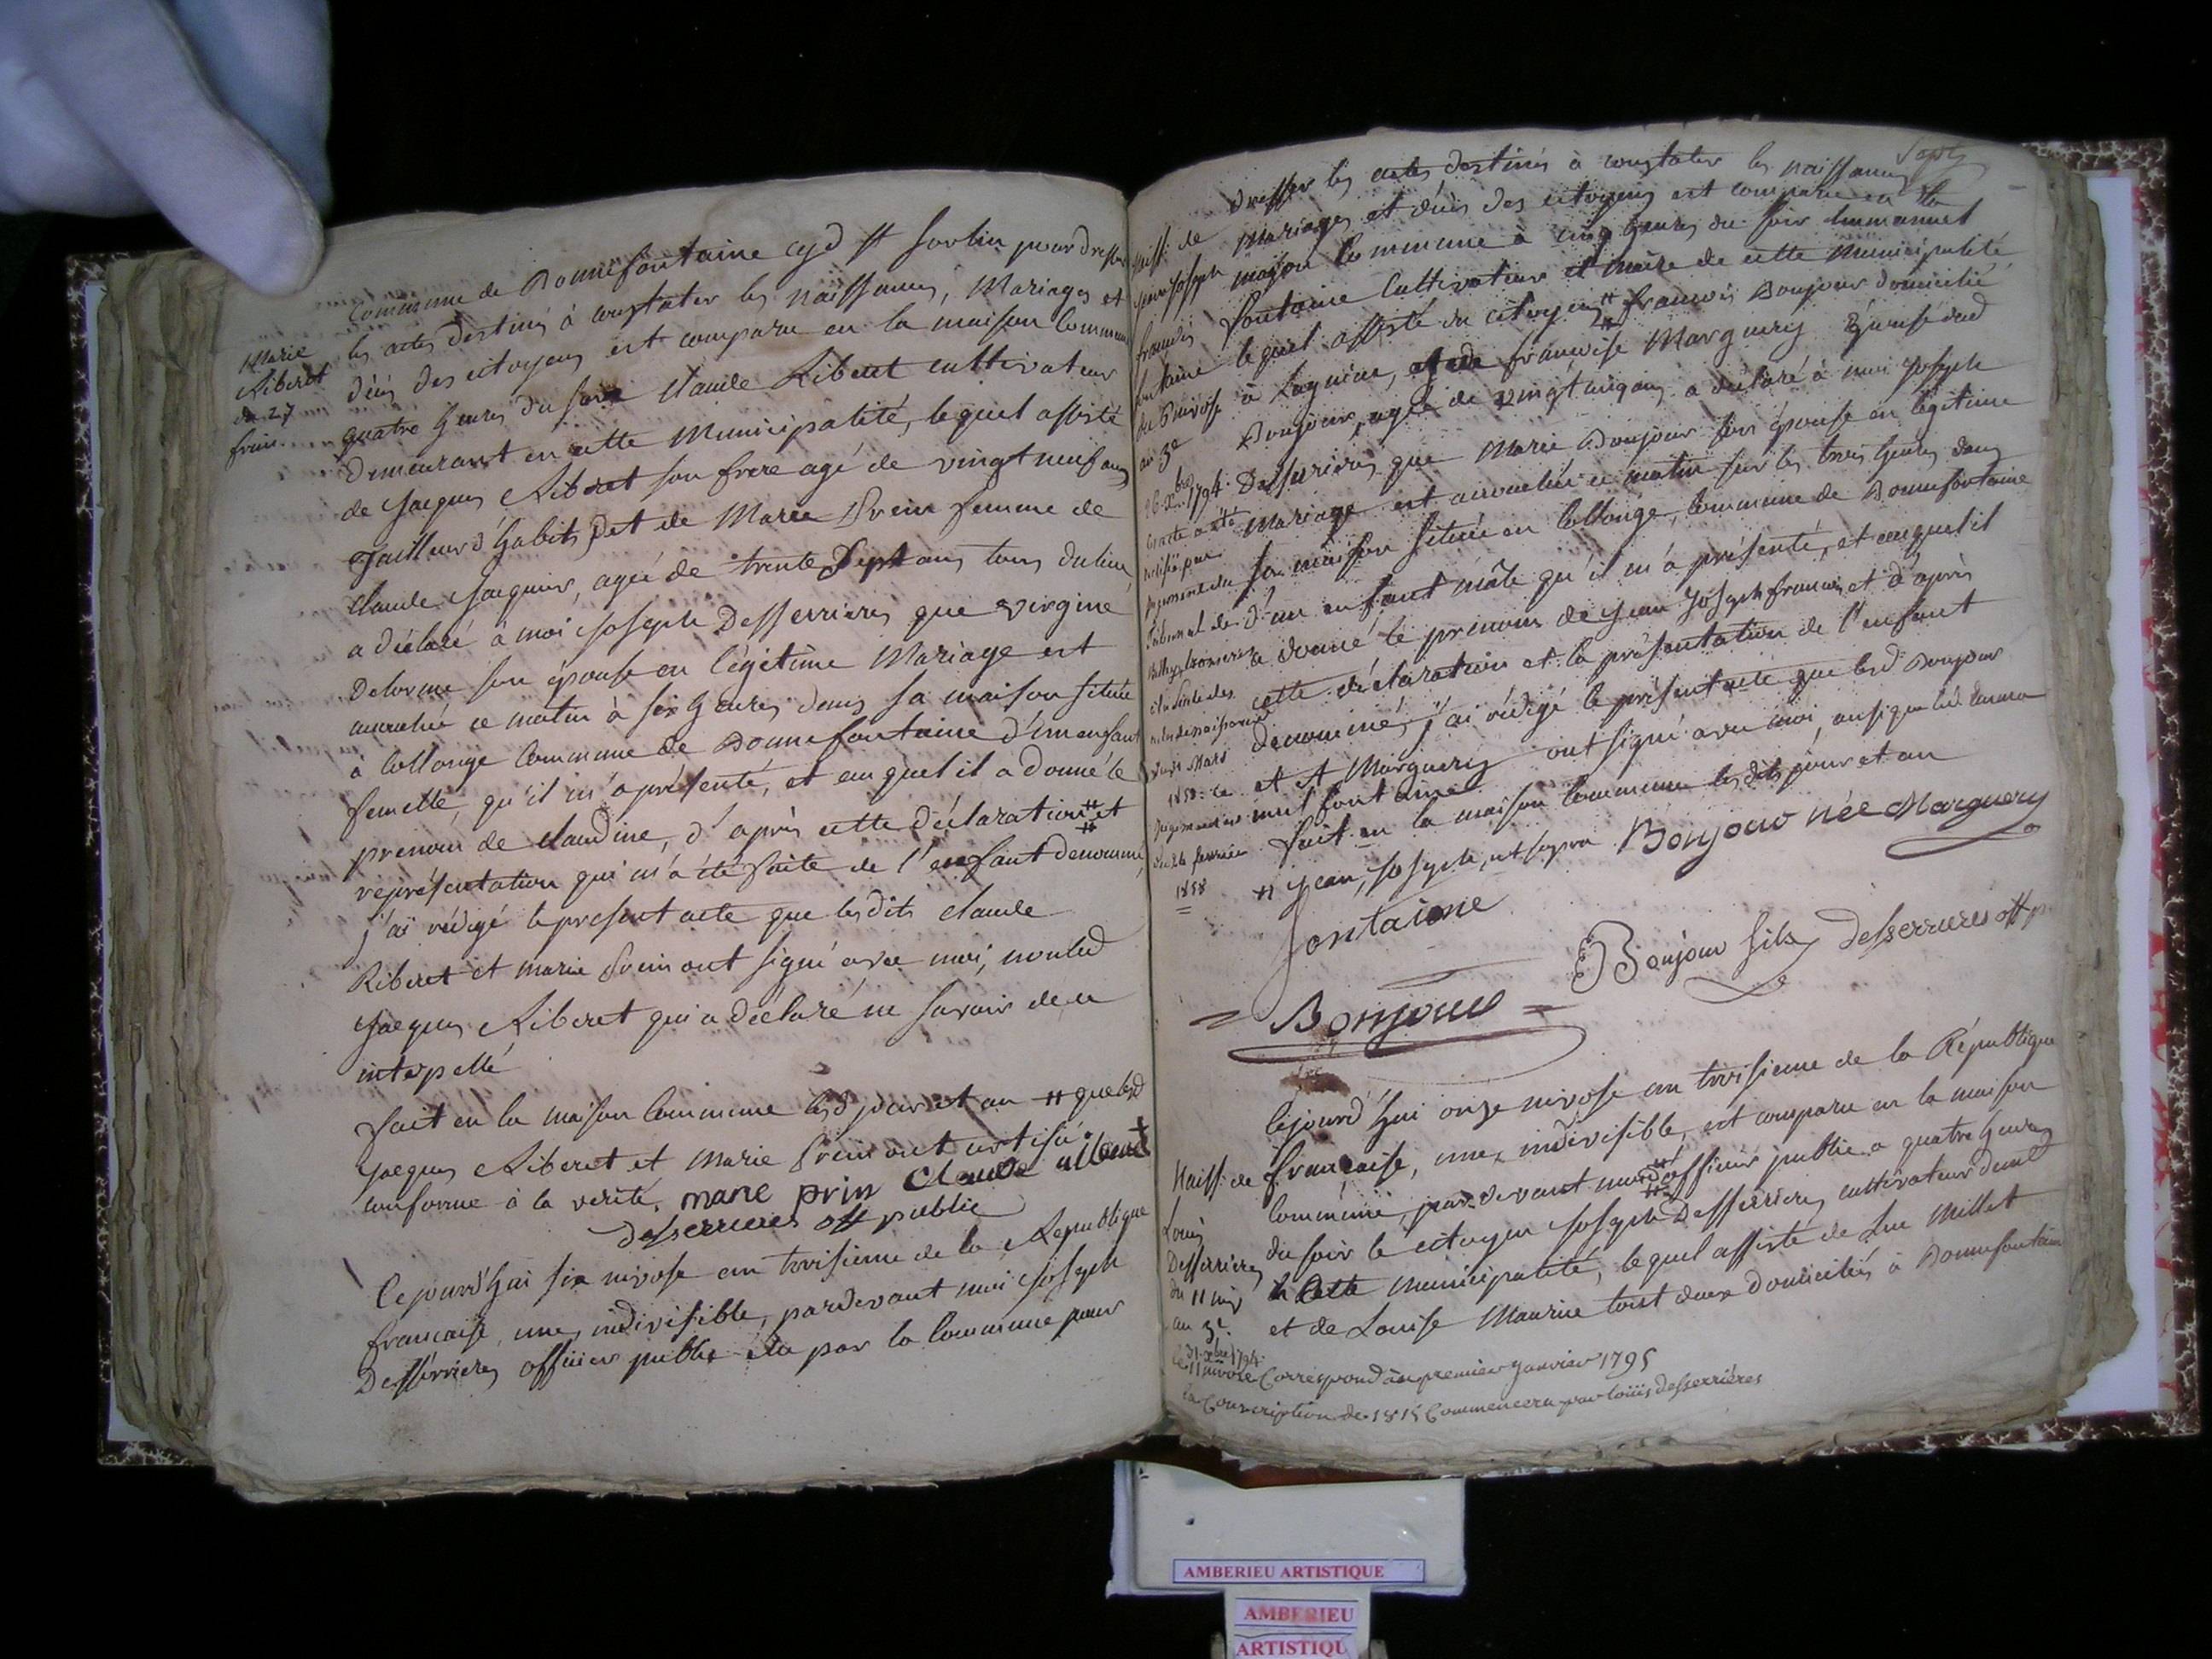 Marie
Riberet
du 27
frim.
Commune de Bonnefontaine cyd St Sorlin pour dresser
les actes destinés à constater les naissances, Mariages et
décès des citoyens est comparu en la maison commune
quatre heures du soir Claude Riberet cultivateur
demeurant en cette Municipalité, lequel assisté
de Jacques Riberet son frere agé de vingt neuf ans
Tailleur d'habits, et de Marie Prin femme de
Claude Jacquier, agée de trente sept ans tous du lieu
a déclaré à moi Joseph Desserrieres que virgine
Delorme son épouse en légitime Mariage est
accouchée ce matin à six heures dans sa maison située
à Collonge Commune de Bonnefontaine d'un enfant
femelle, qu'il m'a présenté, et auquel il a donné le
prenom de Claudine, d'après cette déclaration et
représentation qui m'a été faite de l'enfant denommé,
j'ai rédigé le present acte que lesdits Claude
Riberet et marie Prin ont signé avec moi, non led
Jacques Riberet qui a déclaré ne savoir de ce
interpellé
fait en la maison Commune lesd jour et an # que lesd
Jacques Riberet et Marie Prin ont certifié
conforme à la verité. marie prin Claude
Desserrieres off public
Cejourd'hui six nivose an troisieme de la Republique
francaise, une, indivisible, pardevant moi Joseph
Desserrieres officier public élu par la Commune pour
Naiss. de
Jean Joseph
francois
fontaine
du 6 nivose
an 3e
26 Xbre 1794.
dresser les actes destinés à constater les naissances
Mariages et décès des citoyens est comparu en la
maison Commune à cinq heures du soir Emmanuel
fontaine Cultivateur et maire de cette Municipalité
lequel assisté du citoyen # francois Bonjour domicilié
à Lagnieu, et de francoise Marguery épouse dud
Bonjour, agée de vingt cinq ans a déclaré à moi Joseph
Desserrieres que Marie Bonjour son épouse en légitime
Mariage est accouchée ce matin sur les trois heures dans
sa maison située en Collonge, Commune de Bonnefontaine
d'un enfant mâle qu'il m'a présenté, et auquel il
a donné le prenom de Jean Joseph francois et d'après
cette déclaration et la présentation de l'enfant
denommé, j'ai rédigé le présent acte que lesd Bonjour
et Marguery ont signé avec moi, ainsi que led Emma
nuel fontaine
fait en la maison Commune lesdits jour et an
# Jean, Joseph, ut supra Bonjour née Marguery
fontaine
Bonjour fils Desserrieres off p.
Bonjour
Naiss. de
Louis
Desserrieres
du 11 niv
an 3e.
31 Xbre 1794
Cejourd'hui onze nivose an troisieme de la République
francaise, une, indivisible, est comparu en la maison
Commune, pardevant moi officier public a quatre heures
du soir le citoyen Joseph Desserrieres cultivateur dem
à Cette municipalité, lequel assisté de Luc Millet
et de Louise Maurine tout deux domiciliés à Bonnefontaine
le 11 nivose Correspond au premier Janvier 1795
la Conscription de 1815 Commencera par Loüis desserriéres
AMBERIEU ARTISTIQUE
AMBERIEU
ARTISTIQU